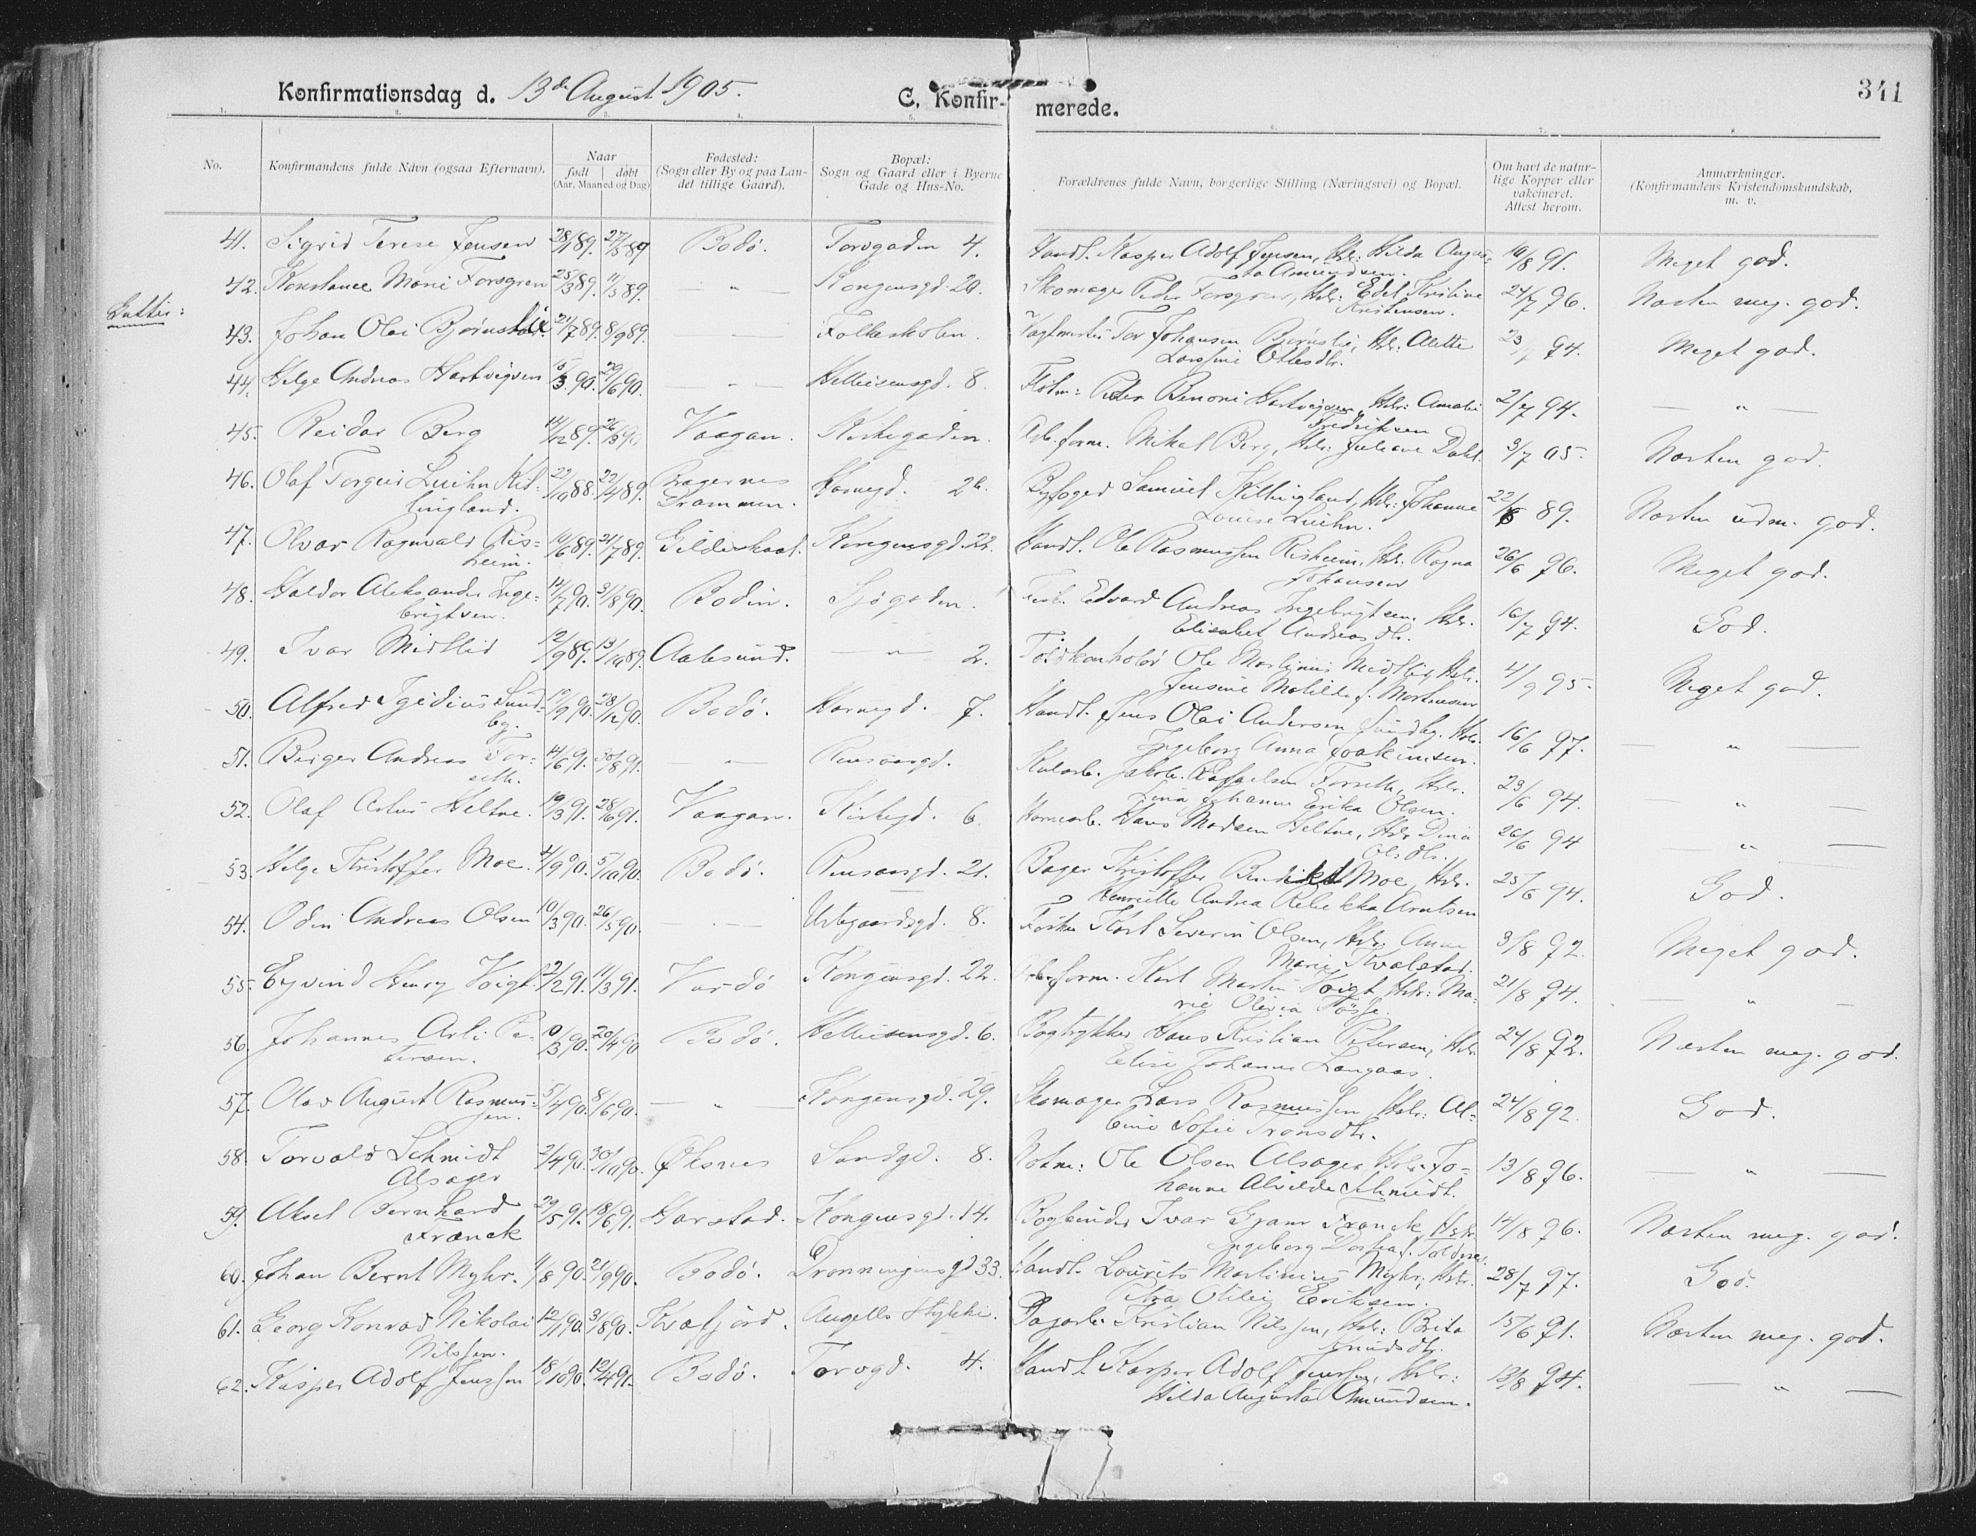 Konfirmationsdag d. 13de August 1905.
C. Konfir-
merede.
341
No.
Konfirmandens fulde Navn (ogsaa Efternavn).
Naar
født døbt
(Aar, Maaned og Dag)
Fødested:
(Sogn eller By og paa Lan-
det tillige Gaard).
Bopæl:
Sogn og Gaard eller i Byerne
Gade og Hus-No.
Forældrenes fulde Navn, borgerlige Stilling (Næringsvei) og Bopæl.
Om havt de natur-
lige Kopper eller
vakcineret.
Attest herom.
Anmærkninger.
(Konfirmandens Kristendomskundskab,
m. v.
41. Sigrid Terese Jensen 28/1 89. 27/5 89 Bodø. Torvgaden 4. Handl. Kasper Adolf Jensen, Hstr. Hilda Augus-
ta Amundsen. 19/8 91. Meget god.
42. Konstance Marie Forsgren 25/3 89. 11/5 89. — " — Kongensgd. 20. Skomager Peder Forsgren, Hstr: Edel Kristine
Kristensen. 24/7 96. Næsten meg. god.
Gutter:
43. Johan Olai Bjørnslie 21/7 89. 8/9 89. — Folkeskolen. Vagtmester Tor Johansen Bjørnsli, Hstr. Alette
Larsine Ottesdtr. 23/7 94. Meget god.
44. Helge Andreas Hartvigsen 15/3 90. 29/6 90. — " — Hellliesensgd. 8. Flotm: Peder Benoni Hartvigsen, Hstr: Amalie
Fredriksen 2/7 94. — " —
45. Reidar Berg 14/12 89. 26/3 90 Vaagan. Kirkegaden. Arb.form. Mikal Berg, Hstr. Juliane Dahl. 3/7 05. Næsten god.
46. Olaf Torgeir Luihn Kit-
tingland. 22/10 88. 22/4 89. Bragernes
Drammen. Havnegd. 26. Byfoged Samuel Kittingland, Hstr: Johanne
Louise Luihn. 22/8 89. Næsten udm. god.
47. Olvar Ragnvald Ris-
heim. 16/6 89. 21/7 89. Gildeskaal. Kongensgd. 22. Handl. Ole Rasmussen Risheim, Hstr. Ragna
Johansen 26/6 96. Meget god.
48. Haldor Aleksander Inge-
brigtsen. 12/7 90. 31/8 90. Bodin. Sjøgaden. Edvard Andreas Ingebrigtsen. Hstr.
Elisabet Andreasdtr. 16/7 94. God.
49. Ivar Midtlid 12/9 89. 13/10 89. Aalesund. — " — 2. Toldkontrolør Ole Martinius Midtlid, Hstr.
Jensine Matilde f. Mortensen 4/9 95. Meget god.
50. Alfred Igidius Sund-
by. 19/9 90. 28/12 90. Bodø. Havnegd. 7. Handl. Jens Olai Andersen Sundby. Hstr.
Ingeborg Anna Joakimsen. 16/6 97. — " —
51. Birger Andreas For-
seth. 14/6 91. 30/8 91. — " — Rensaasgd. Kularb. Jakob Raffaelsen Forseth, Hstr.
Lina Johanne Erika Olsen. 23/6 94. — " —
52. Olaf Artus Heltne. 19/3 91. 28/6 91. Vaagan. Kirkegd. 6. Havnearb. Hans Madsen Heltne, Hstr Dina
Olsdtr. 26/6 94 — " —
53. Helge Kristoffer Moe. 4/9 90. 5/10 90. Bodø. Rensaasgd. 21. Bager Kristoffer Benedikt Moe, Hstr.
Henriette Andrea Rebekka Arntsen 25/6 94. God.
54. Odin Andreas Olsen 10/3 90. 26/5 90. — Urtegaardsgd. 8. Fisker Karl Severin Olsen, Hstr. Anne
Marie Kvalstad. 3/8 92. Meget god.
55. Eyvind Henry Voigt. 12/2 91. 11/3 91. Vardø Kongensgd. 22. Arb.form. Karl Martin Voigt, Hstr: Ma-
rie Olivia Fosse. 21/8 94. — " —
56. Johannes Arti Pe-
tersen. 10/3 90. 20/4 90 Bodø. Helliesensgd. 6. Bogtrykker Hans Kristian Petersen, Hstr
Elise Johanne Langaas. 24/8 92. Næsten meg. god.
57. Olav August Rasmus-
sen. 5/4 90. 8/6 90. — " — Kongensgd. 29. Skomager Lars Rasmussen, Hstr: Al-
bine Sofie Transdtr. 24/8 92. God.
58. Torvald Schmidt
Alsager 2/4 90. 30/10 90. Øksnes Sandgd. 8. Rotm: Ole Olsen Alsager, Hstr: Jo-
hanne Alvilde Schmidt. 13/8 96. — " —
59. Aksel Bernhard
Franck 29/5 91. 18/6 91. Harstad. Kongensgd. 14. Bogbinder Ivar Grønn Franck, Hstr.
Ingeborg Dorfea f. Toldnes. 14/8 96. Næsten meg. god.
60. Johan Bernt Myhr. 11/8 90. 21/9 90. Bodø. Dronningensgd 33. Handl. Lourits Martinius Myhr, Hstr.
Petra Otilie Eriksen. 28/7 97. God.
61. Georg Konrad Nikolai
Nilssen. 12/1 90. 31/8 90. Kvæfjord. Angells Stykke. Bagarb. Kristian Nilssen, Hstr: Brita
Knudsdtr. 15/6 91. Næsten meg. god.
62. Kasper Adolf Jenssen 18/10 90. 12/4 91. Bodø. Torvgd. 4. Handl. Kasper Adolf Jenssen, Hstr:
Hilda Augusta Amundsen. 13/8 94. — " —